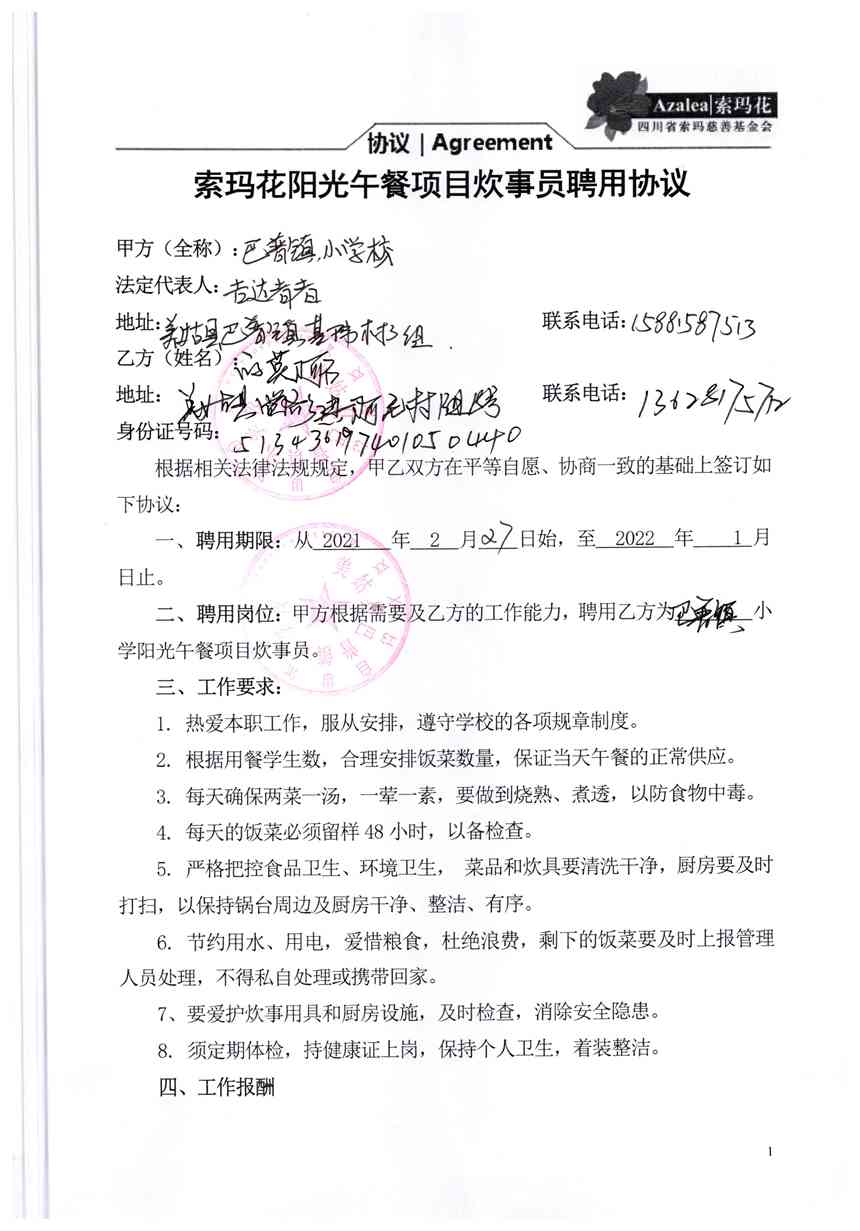 Azalea|索玛花
四川省索玛慈善基金会
协议 | Agreement
索玛花阳光午餐项目炊事员聘用协议
甲方（全称）：巴普镇小学校
法定代表人：吉达
地址：美姑县巴普镇基伟村3组 联系电话：15881587513
乙方（姓名）：
地址： 联系电话：
身份证号码：513436197401050440
根据相关法律法规规定，甲乙双方在平等自愿、协商一致的基础上签订如
下协议：
一、聘用期限：从 2021 年 2 月27日始，至 2022 年 1 月
日止。
二、聘用岗位：甲方根据需要及乙方的工作能力，聘用乙方为巴普镇 小
学阳光午餐项目炊事员。
三、工作要求：
1. 热爱本职工作，服从安排，遵守学校的各项规章制度。
2. 根据用餐学生数，合理安排饭菜数量，保证当天午餐的正常供应。
3. 每天确保两菜一汤，一荤一素，要做到烧熟、煮透，以防食物中毒。
4. 每天的饭菜必须留样 48 小时，以备检查。
5. 严格把控食品卫生、环境卫生， 菜品和炊具要清洗干净，厨房要及时
打扫，以保持锅台周边及厨房干净、整洁、有序。
6. 节约用水、用电，爱惜粮食，杜绝浪费，剩下的饭菜要及时上报管理
人员处理，不得私自处理或携带回家。
7、要爱护炊事用具和厨房设施，及时检查，消除安全隐患。
8. 须定期体检，持健康证上岗，保持个人卫生，着装整洁。
四、工作报酬
1